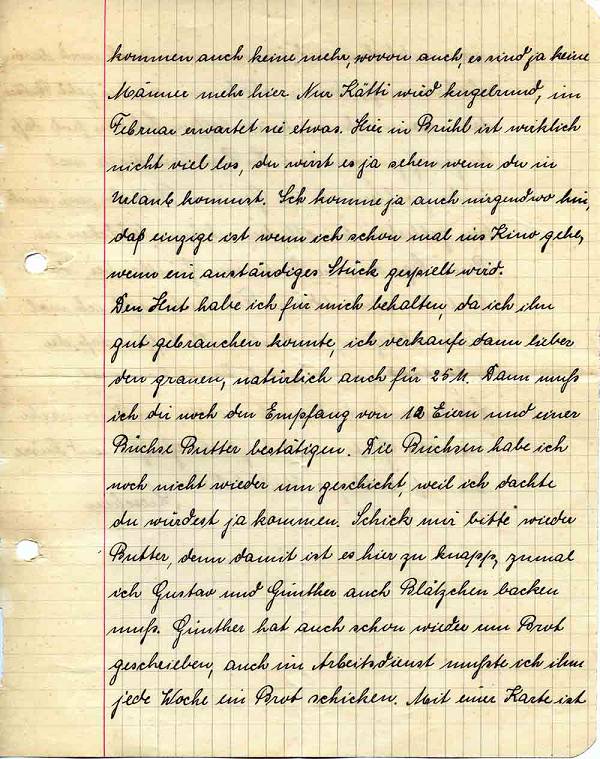 kommen auch keine mehr, wovon auch, es sind ja keine
Männer mehr hier. Nur Kätti wird kugelrund, im
Februar erwartet sie etwas. Hier in Brühl ist wirklich
nicht viel los, du wirst es ja sehen wenn du in
Urlaub kommst. Ich komme ja auch nirgendwo hin,
daß einzige ist wenn ich schon mal ins Kino gehe,
wenn ein anständiges Stück gespielt wird.
Den Hut habe ich für mich behalten, da ich ihn
gut gebrauchen konnte, ich verkaufe dann lieber
den grauen, natürlich auch für 25 M. Dann muß
ich dir noch den Empfang von 12 Eiern und einer
Büchse Butter bestätigen. Die Büchsen habe ich
noch nicht wieder um geschickt, weil ich dachte
du würdest ja kommen. Schick mir bitte wieder
Butter, denn damit ist es hier zu knapp, zumal
ich Gustav und Günther auch Plätzchen backen
muß. Günther hat auch schon wieder um Brot
geschrieben, auch im Arbeitsdienst mußte ich ihm
jede Woche ein Brot schicken. Mit einer Karte ist